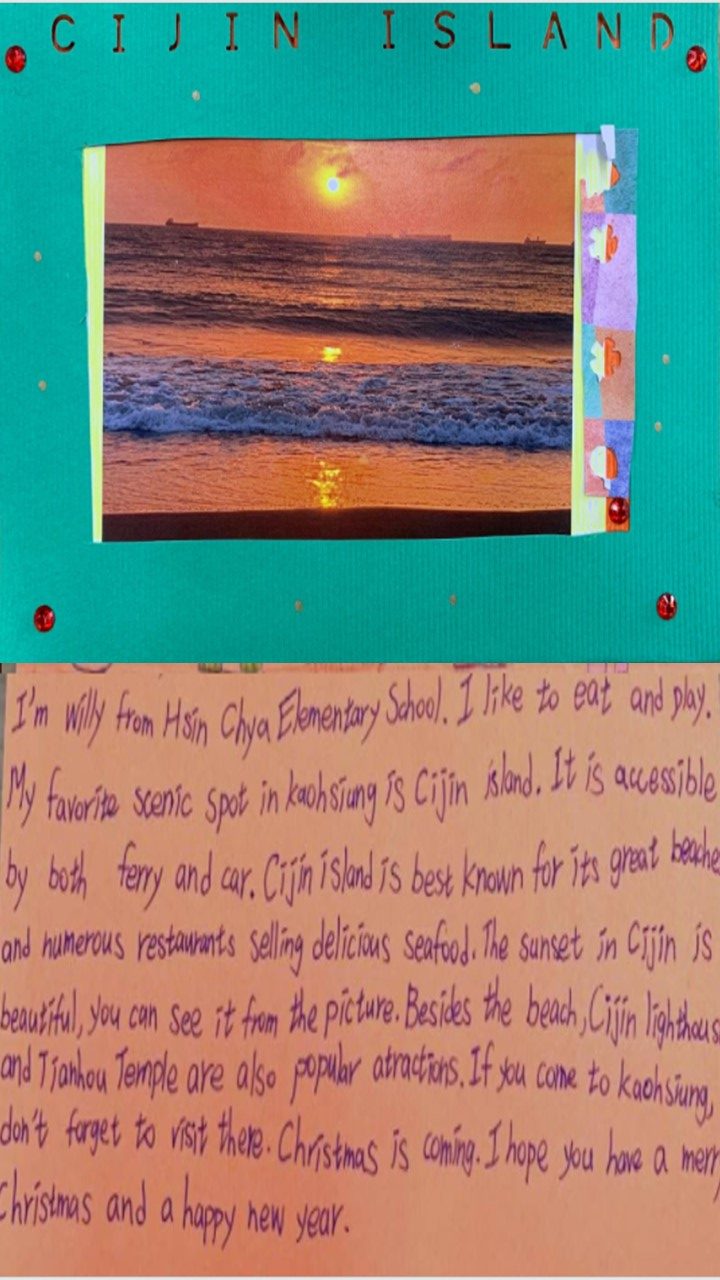 CIJIN ISLAND
I'm Willy from Hsin Chya Elementary School. I like to eat and play.
My favorite scenic spot in kaohsiung is Cijin island. It is accessible
by both ferry and car. Cijin island is best known for its great beache
and numerous restaurants selling delicious seafood. The sunset in Cijin is
beautiful, you can see it from the picture. Besides the beach, Cijin lighthous
and Tianhou Temple are also popular atractions. If you come to kaohsiung,
don't forget to visit there. Christmas is coming. I hope you have a merr
Christmas and a happy new year.